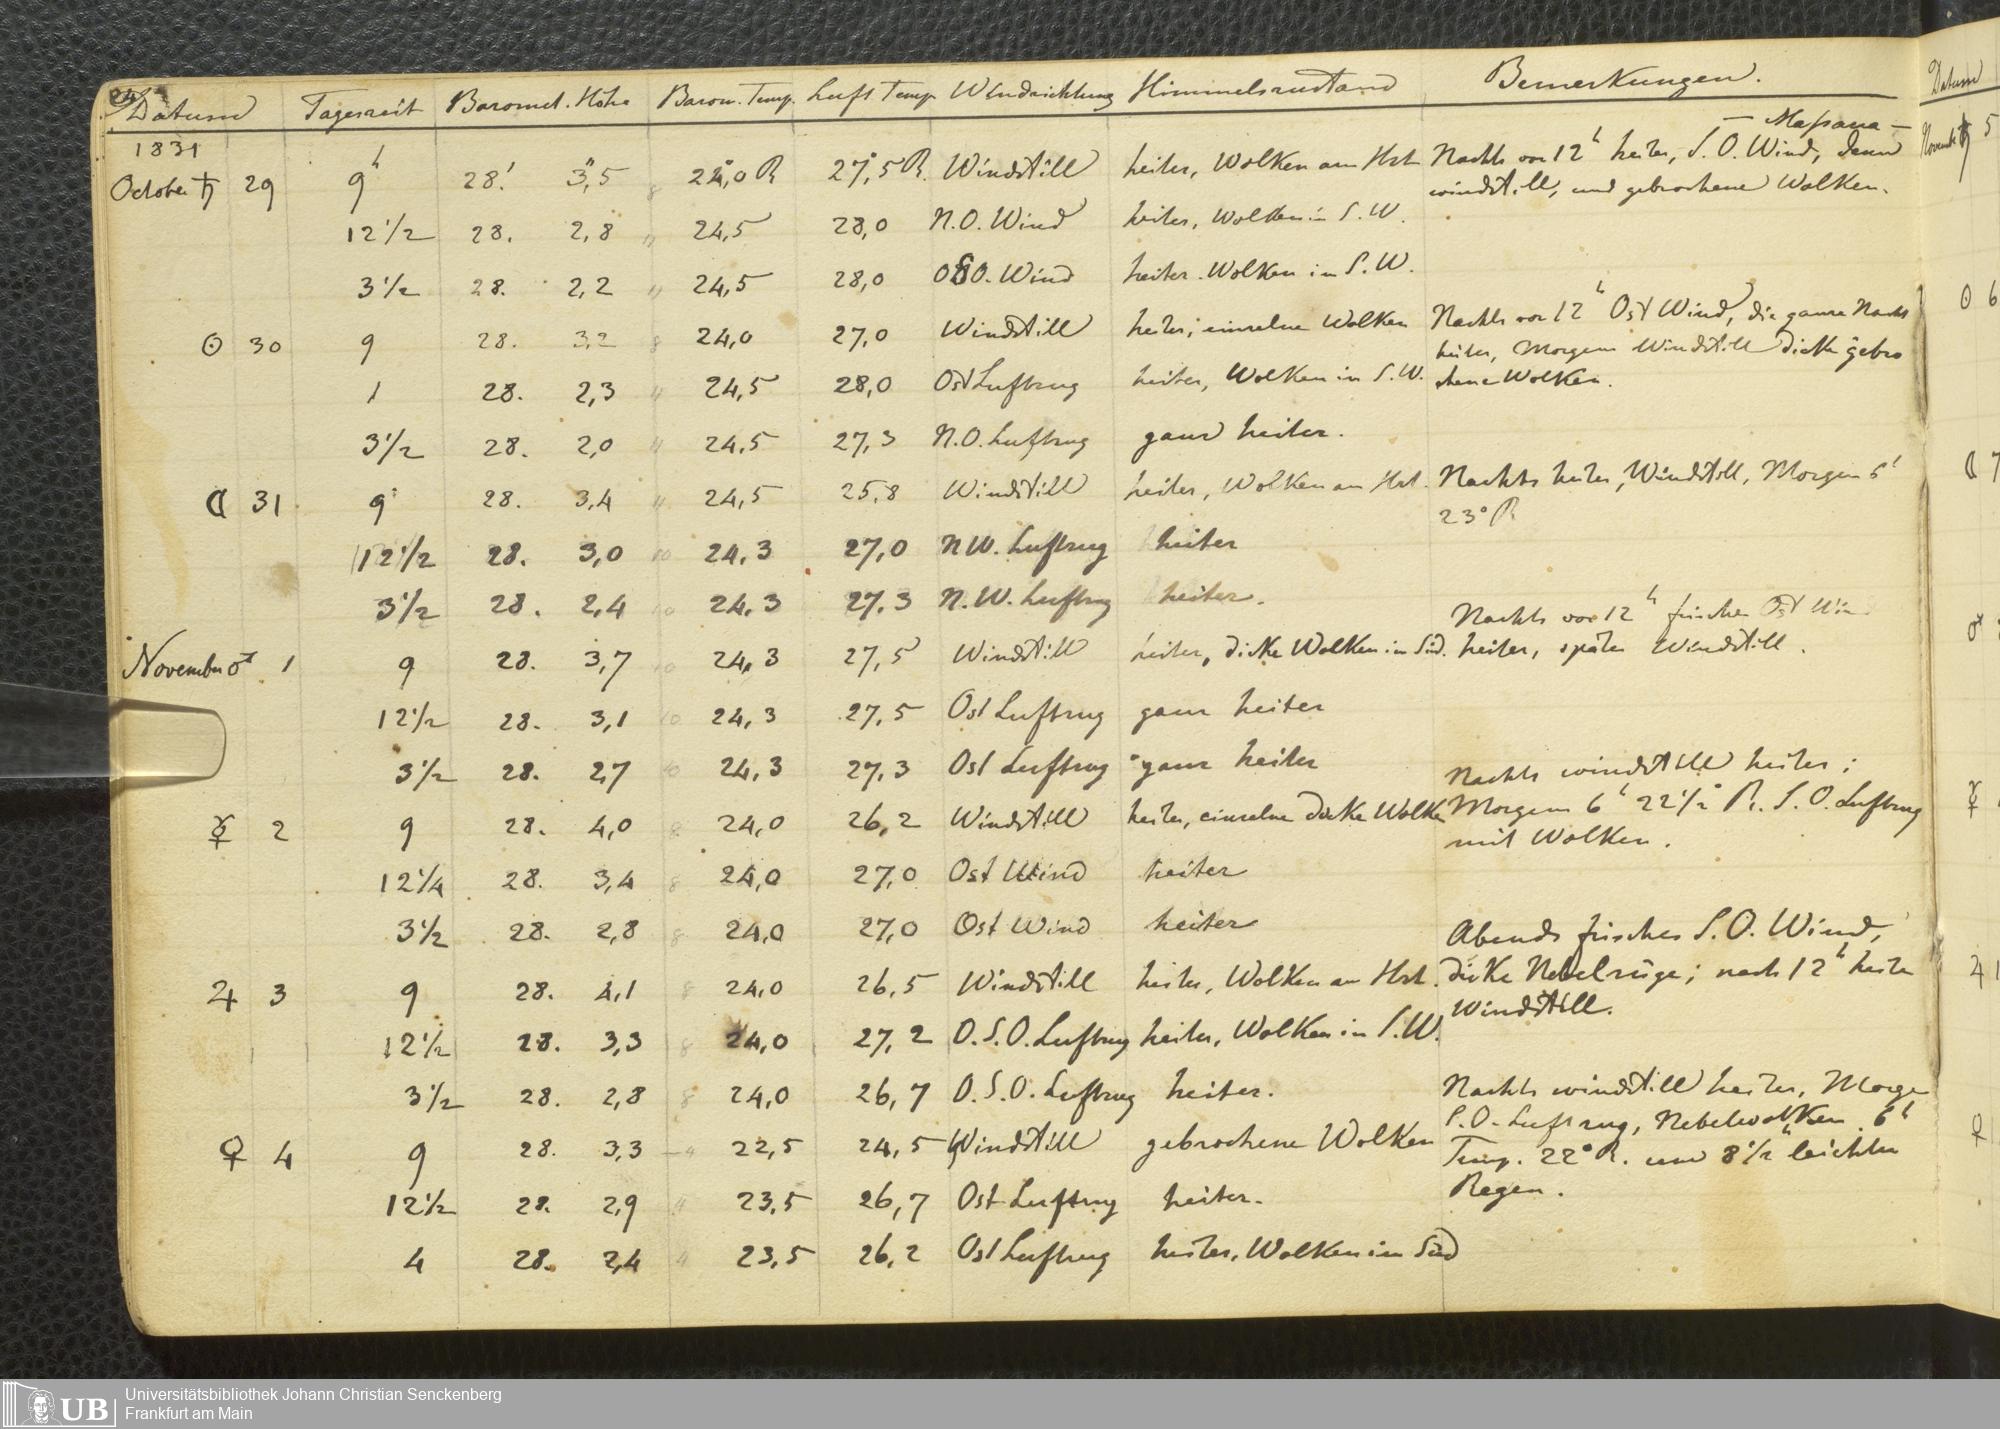 24
Datum Tageszeit Baromet. Höhe Barom. Temp. Luft Temp Windrichtung Himmelszustand Bemerkungen.
1831 — Massaua —
October ♄ 29 9h 28' 3",5 8 24°,0 R 27°,5 R. Windstill heiter, Wolken am Hzt Nachts vor 12h heiter, S.O. Wind, dann
windstill, und gebrochene Wolken.
12 1/2 28. 2,8 " 24,5 28,0 N.O. Wind heiter, Wolken in S.W.
3 1/2 28. 2,2 " 24,5 28,0 OSO. Wind heiter. Wolken in S.W.
☉ 30 9 28. 3,2 8 24,0 27,0 Windstill heiter; einzelne Wolken Nachts vor 12h Ost Wind, die ganze Nacht
heiter, Morgens Windstill dicke gebro
1 28. 2,3 " 24,5 28,0 Ost Luftzug heiter, Wolken in S.W. chene Wolken.
3 1/2 28. 2,0 " 24,5 27,3 N.O. Luftzug ganz heiter.
☾ 31 9 28. 3,4 " 24,5 25,8 Windstill heiter, Wolken am Hzt. Nachts heiter, Windstill, Morgen 6h
23° R
12 1/2 28. 3,0 10 24,3 27,0 N W. Luftzug heiter
3 1/2 28. 2,4 10 24,3 27,3 N.W. Luftzug heiter.
Nachts vor 12h frischer Ost Win
November ♂ 1 9 28. 3,7 10 24,3 27,5 Windstill heiter, dicke Wolken im Süd. heiter, später Windstill.
12 1/2 28. 3,1 10 24,3 27,5 Ost Luftzug ganz heiter
3 1/2 28. 2,7 10 24,3 27,3 Ost Luftzug ganz heiter
Nachts windstill heiter;
☿ 2 9 28. 4,0 8 24,0 26,2 Windstill heiter, einzelne dicke Wolke Morgens 6h 22 1/2° R. S.O. Luftzug
mit Wolken.
12 1/4 28. 3,4 8 24,0 27,0 Ost Wind heiter
3 1/2 28. 2,8 8 24,0 27,0 Ost Wind heiter
Abends frischer S.O. Wind,
♃ 3 9 28. 4,1 8 24,0 26,5 Windstill heiter, Wolken am Hzt. dicke Nebelzüge; nach 12h heiter
windstill.
12 1/2 28. 3,3 8 24,0 27,2 O.S.O. Luftzug heiter, Wolken in S.W.
3 1/2 28. 2,8 8 24,0 26,7 O.S.O. Luftzug heiter. Nachts windstill heiter, Morge
S.O. Luftzug, Nebelwolken. 6h
♀ 4 9 28. 3,3 4 22,5 24,5 Windstill gebrochene Wolken Temp. 22° R. um 8 1/2h leichter
Regen.
12 1/2 28. 2,9 4 23,5 26,7 Ost Luftzug heiter.
4 28. 2,4 4 23,5 26,2 Ost Luftzug heiter, Wolken im Süd
Datum
Novemb ♄ 5
☉ 6
☾ 7
♂
☿
♃
♀
UB
Universitätsbibliothek Johann Christian Senckenberg
Frankfurt am Main